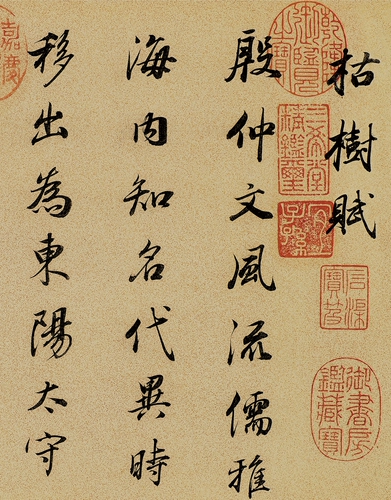 枯樹賦
殷仲文風流儒雅
海內知名代異時
移出為東陽太守
三希堂精鑑璽
宜子孫
石渠寶笈
御書房鑑藏寶
嘉慶